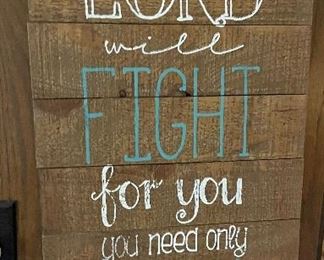 LORD
will
FIGHT
for you
you need only